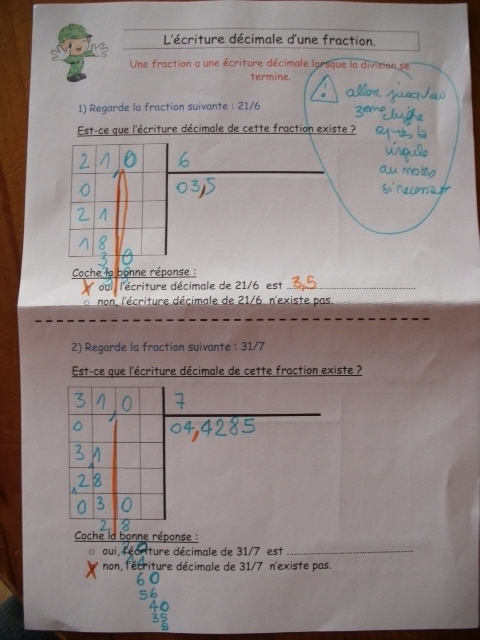 L'écriture décimale d'une fraction.
Une fraction a une écriture décimale lorsque la division se
termine.
aller jusqu'au
3eme chiffre
après la
virgule
au moins
si necessaire
1) Regarde la fraction suivante : 21/6
Est-ce que l'écriture décimale de cette fraction existe ?
2 1, 0 6
0 03,5
2 1
1 8
3 0
Coche la bonne réponse :
X oui, l'écriture décimale de 21/6 est 3,5
o non, l'écriture décimale de 21/6 n'existe pas.
2) Regarde la fraction suivante : 31/7
Est-ce que l'écriture décimale de cette fraction existe ?
3 1, 0 7
0 04,4285
3 1
2 8
0 3 0
2 8
Coche la bonne réponse :
o oui, l'écriture décimale de 31/7 est
X non, l'écriture décimale de 31/7 n'existe pas.
60
56
40
35
5